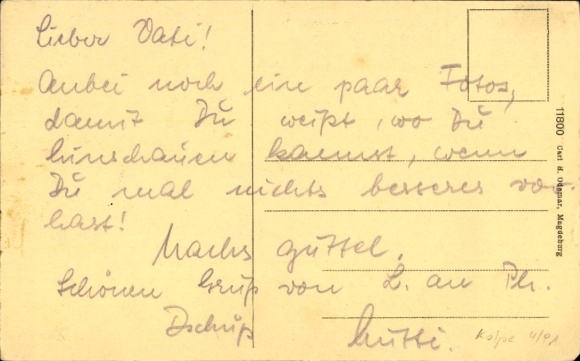 Lieber Vati!
Anbei noch ein paar Fotos,
damit Du weißt, wo Du
hinschauen kannst, wenn
Du mal nichts besseres vor
hast!
Machs guttel.
Schönen Gruß von L. an Ph.
Dschüß Mutti.
11800 Carl H. Odemar, Magdeburg